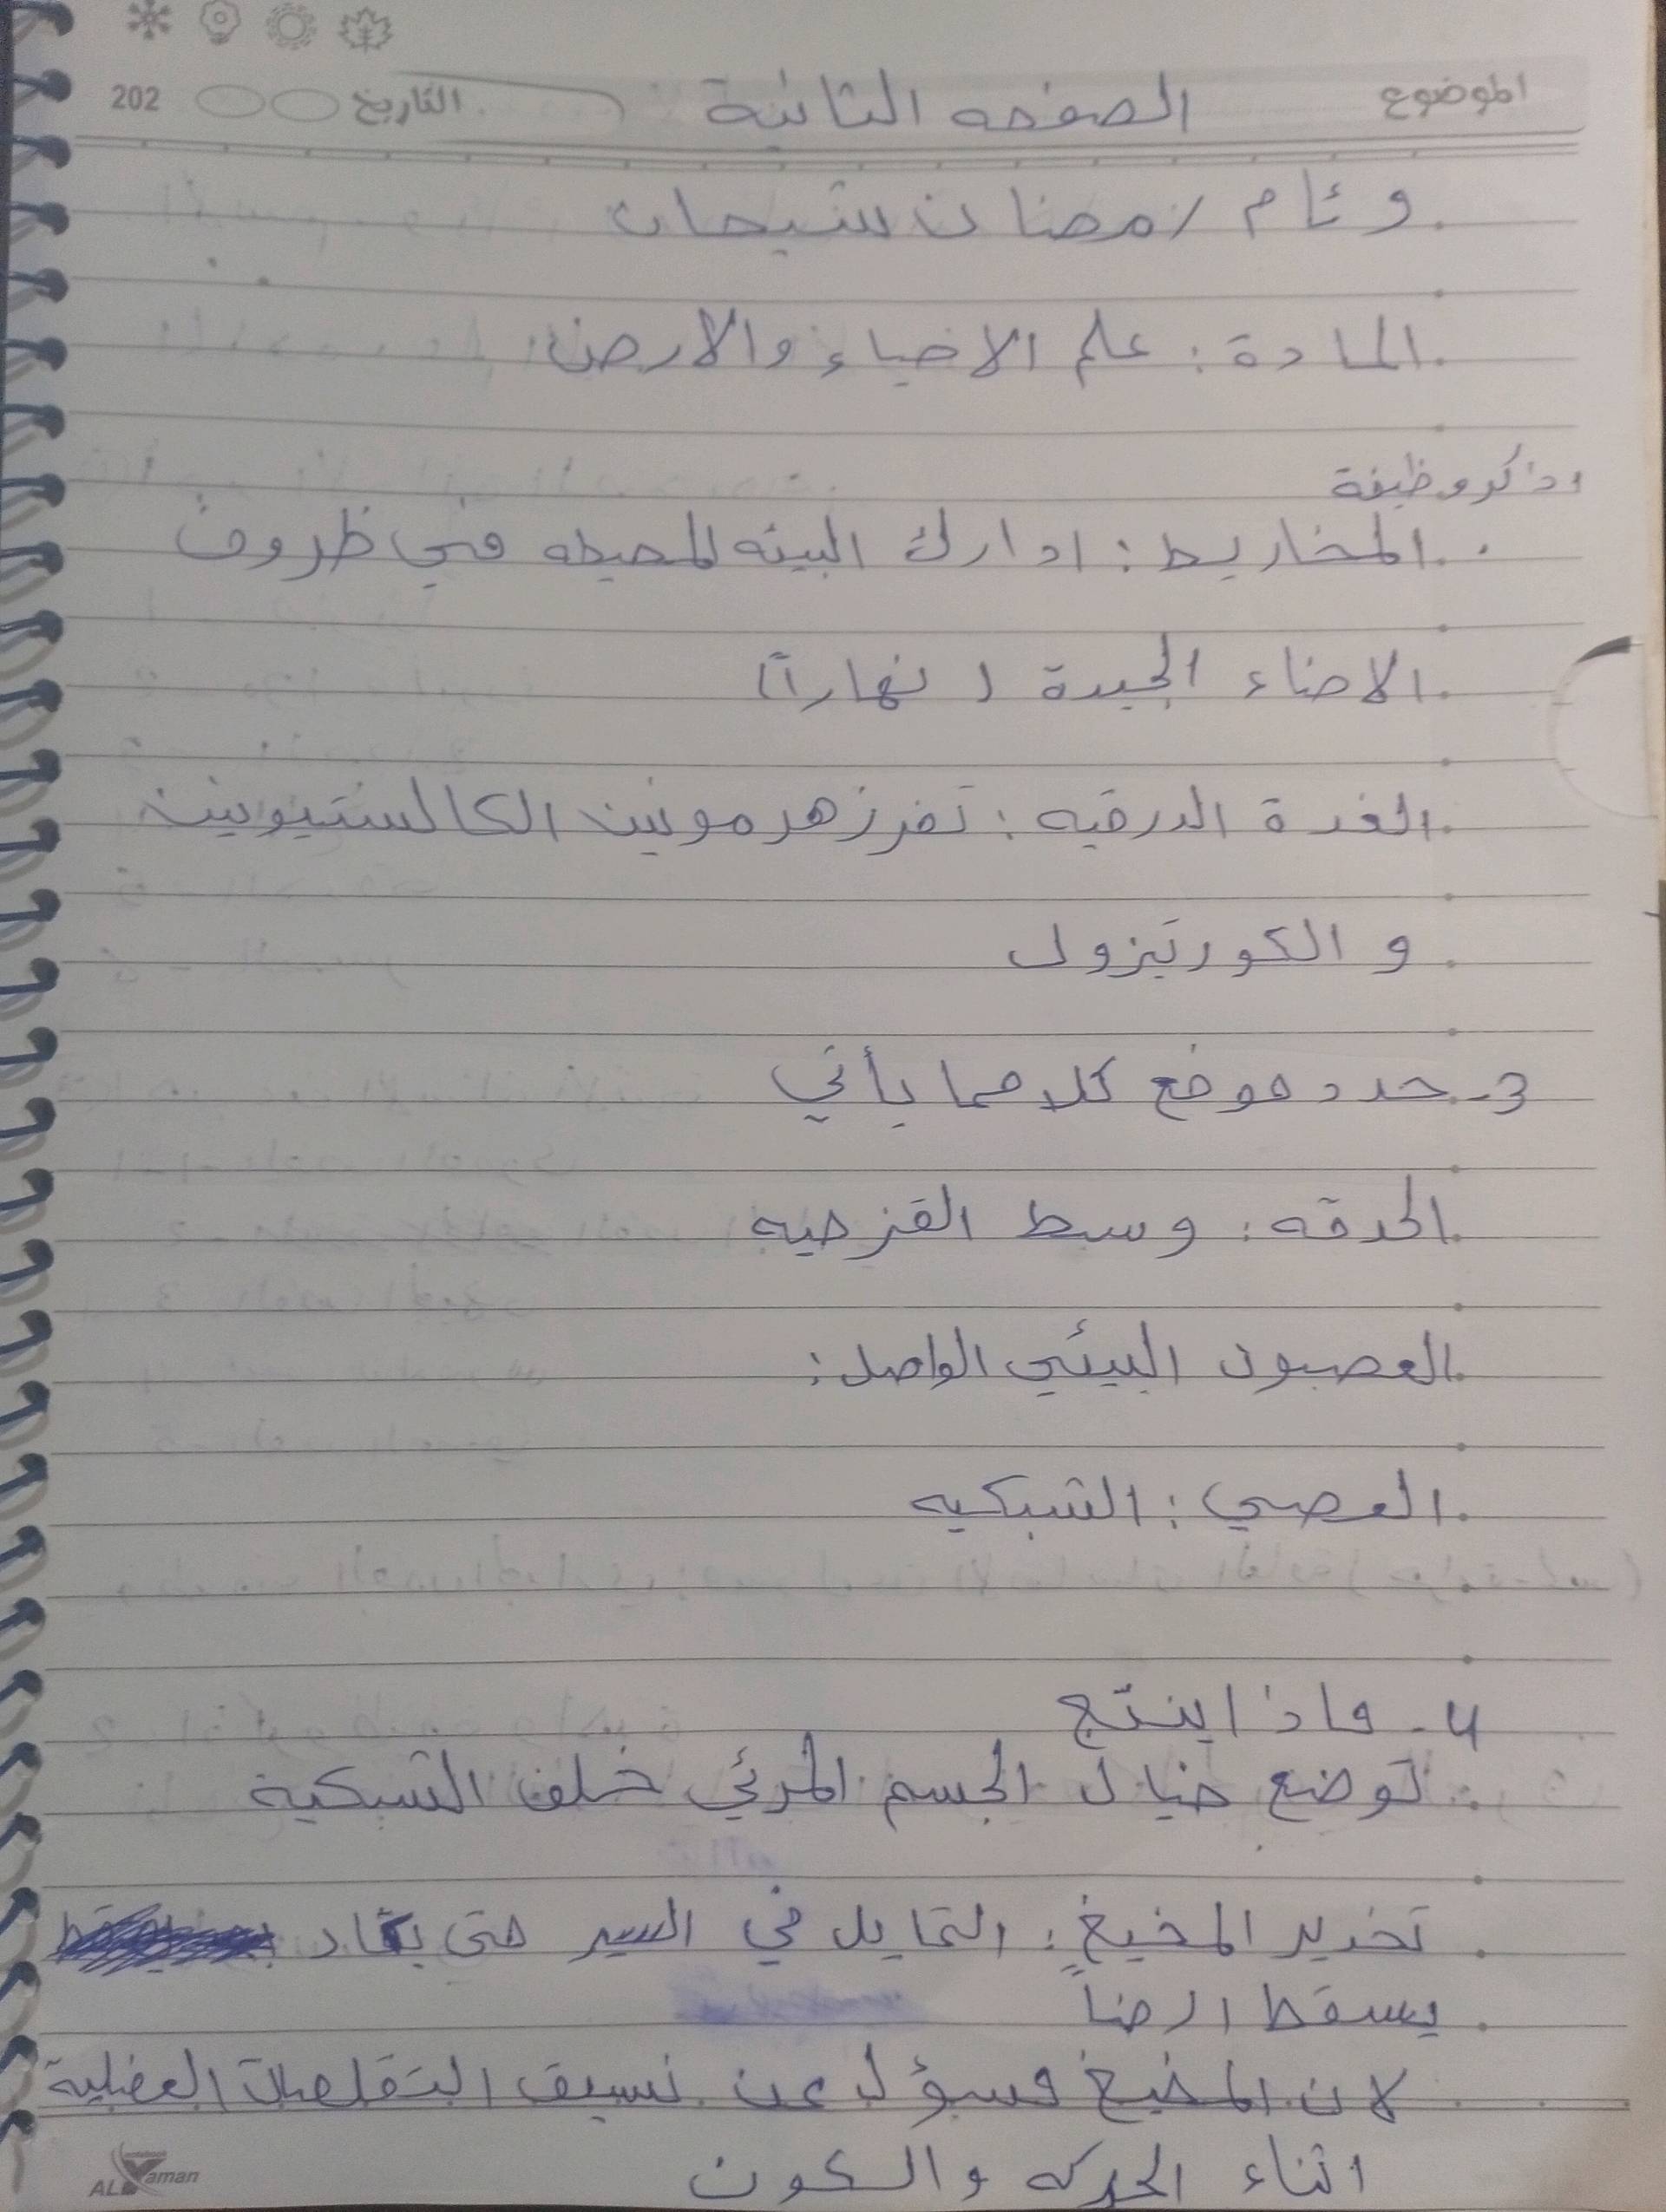 الموضوع
الصفحه الثانية
التاريخ
202
وئام رمضان شيحان
المادة : علم الاحياء والارض
اذكر وظيفة
المخاريط : ادارك البيئه المحيطه في ظروف
الاضاء الجيدة ( نهاراً )
الغدة الدرقيه : تفرز هرمونين الكالستيونين
و الكورتيزول
3- حدد موضع كلا مما يأتي
الحدقه : وسط القزحيه
العصبون البيئي الواصل :
العصي : الشبكيه
4- ماذا ينتج
توضع خيال الجسم المرئي خلف الشبكية
تخدير المخيخ : التمايل في السير حتى يكاد
يسقط ارضاً
لان المخيخ مسؤل عن نسيق التقلصات العضلية
اثناء الحركه والسكون
ALYaman